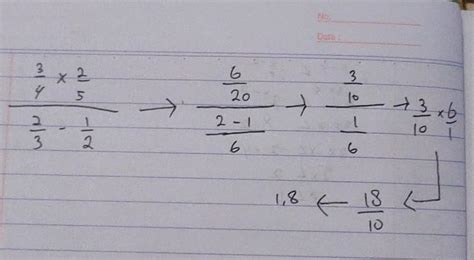 No.
Date :
(3/4 × 2/5) / (2/3 - 1/2) → (6/20) / ((2-1)/6) → (3/10) / (1/6) → 3/10 × 6/1
1,8 ← 18/10 ←